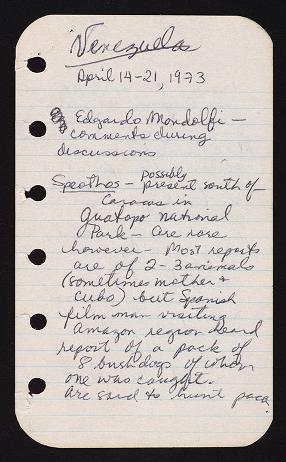 Venezuela
April 14-21, 1973
Edgardo Mondolfi -
comments during
discussions
Speothos - possibly present south of
Caracas in
Guatopo National
Park - are rare
however - Most reports
are of 2-3 animals
(sometimes mother +
cubs) but Spanish
film man visiting
Amazon region heard
report of a pack of
8 bushdogs of whom
one was caught.
Are said to hunt paca